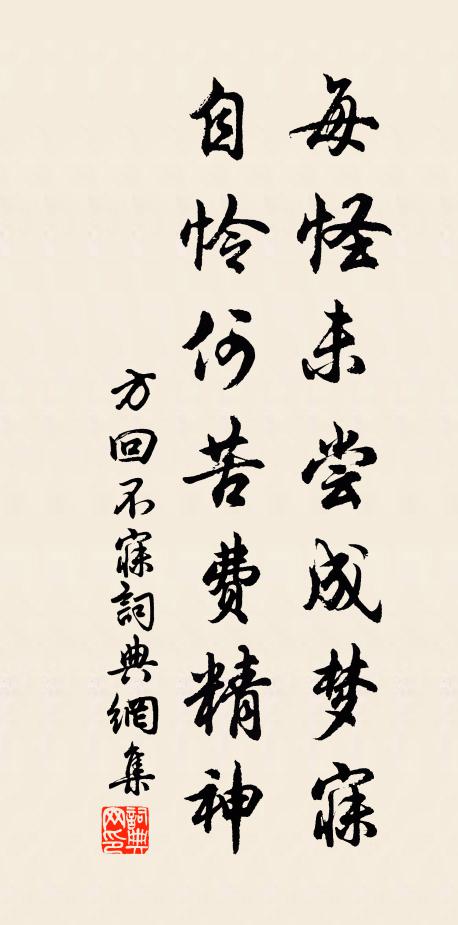 每怪未尝成梦寐
自怜何苦费精神
方回不寐詞典網集
詞典网印